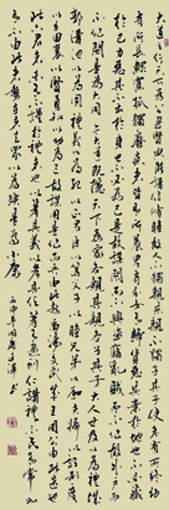 大道之行天下為公選賢與能講信修睦故人不獨親其親不獨子其子使老有所終幼
有所長鰥寡孤獨廢疾者皆有所養男有分女有歸貨惡其棄於地也不必藏
於己力惡其不出於身也不必為己是故謀閉而不興盜竊亂賊而不作故外戶而
不閉是為大同今大道既隱天下為家各親其親各子其子大人世及以為禮城
郭溝池以為固禮義以為紀以正君臣以篤父子以睦兄弟以和夫婦以設制度
以立田里以賢勇知以功為己故謀用是作而兵由此起禹湯文武成王周公由此其選也
此六君子者未有不謹於禮者也以著其義以考其信著有過刑仁講禮示民有常如
有不由此者在勢者去眾以為殃是為小康
丙申年